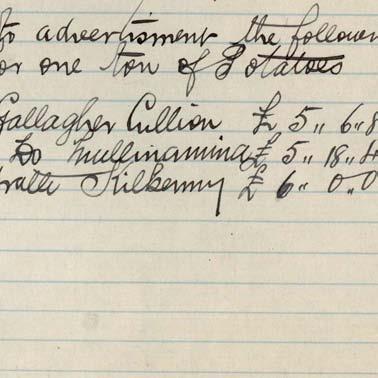 to advertisment the follow
or one ton of Potatoes
Gallagher Cullion £ 5,, 6,, 8
Do Mullinamina £ 5,, 18,, 4
ratte Kilkenny £ 6,, 0,, 0